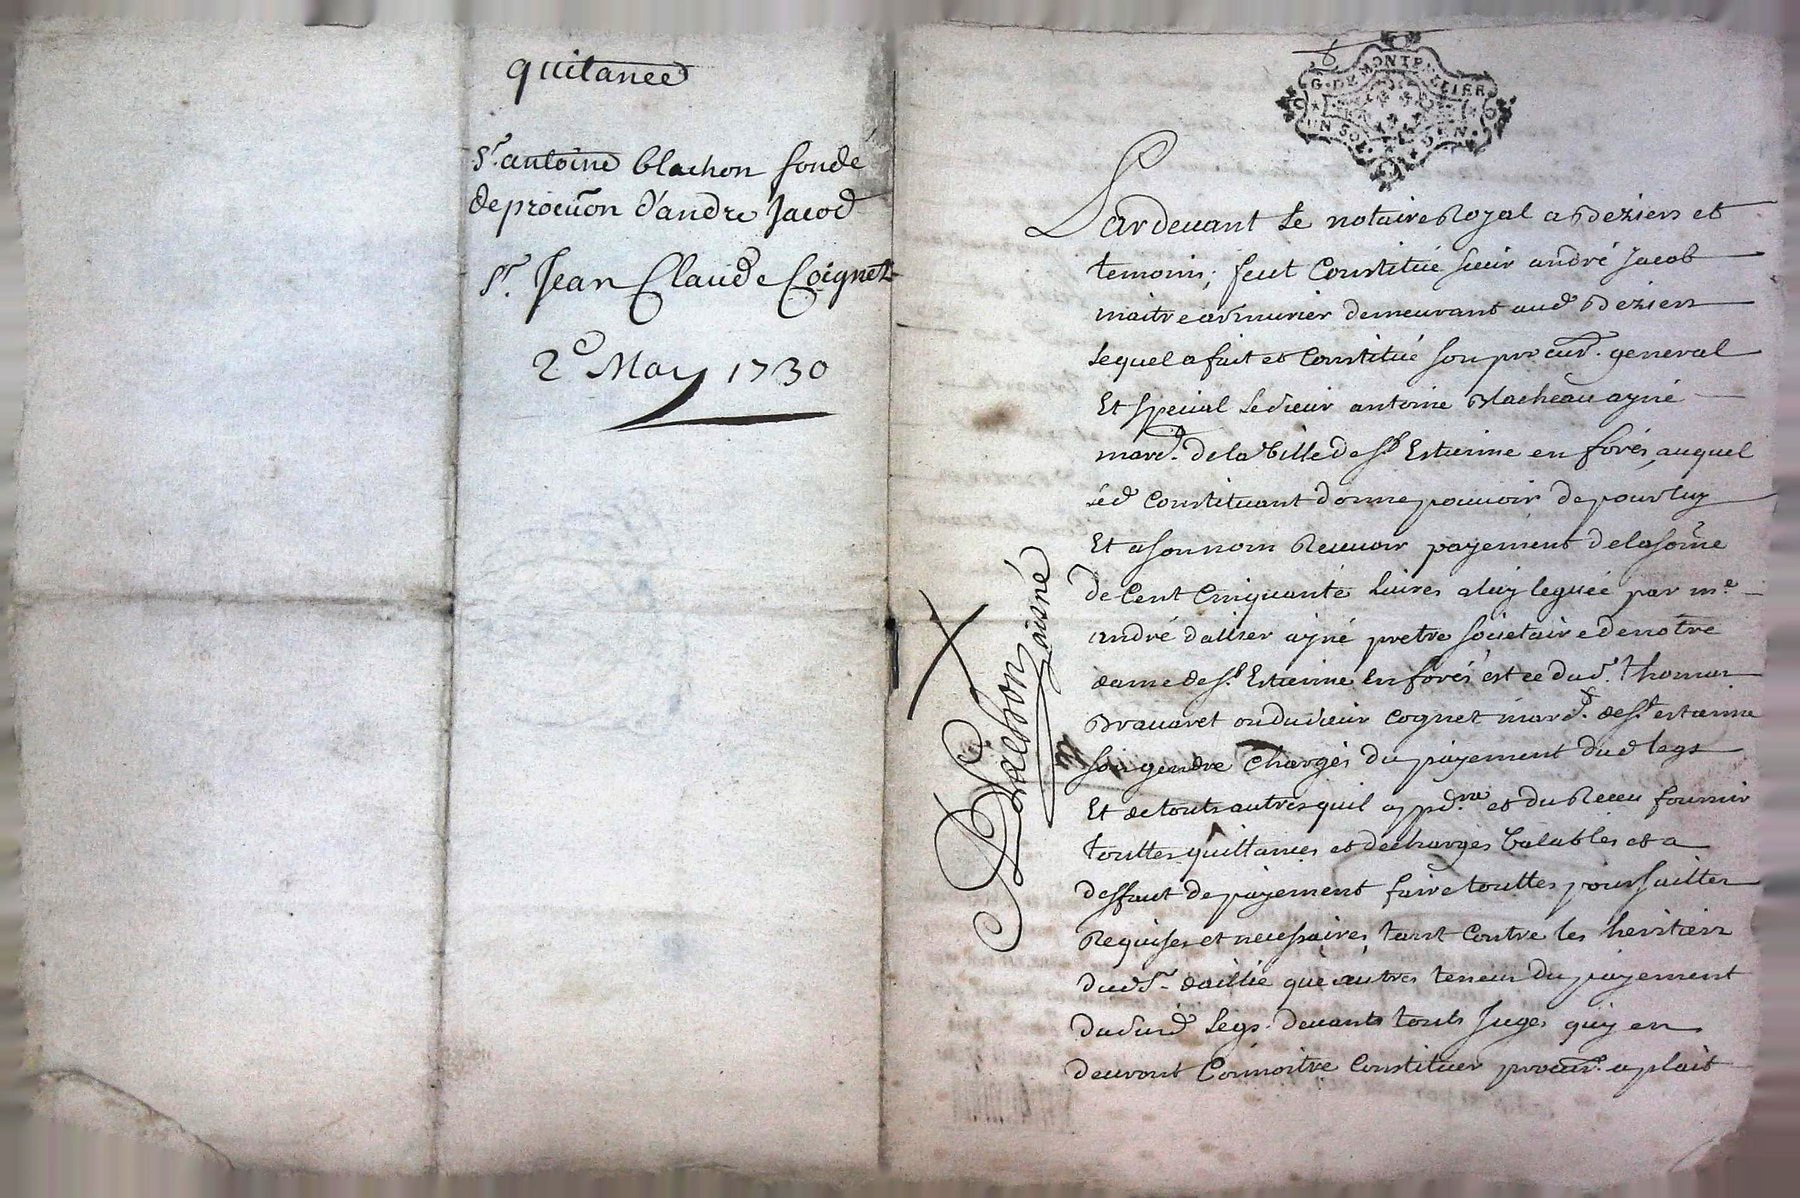 quitance
Sr. antoine blachon fondé
de procu͠on d'andre Jacod
Sr. Jean Claude Coignet
2e May 1730
G. DE MONTPELLIER
UN SOL. DEN.
Pardevant le notaire Royal a Beziers et
temoins, feut Constitué sieur andré Jacob
maitre armurier demeurant aud Beziers
lequel a fait et Constitué son procur. general
Et special le sieur antoine Blacheau ayné
marcd. de la Ville de St Estienne en forés, auquel
led Constituant donne pouvoir de pour luy
Et a son nom Recevoir payement de la some
de Cent Cinquante livres a luy leguée par me
andré dallier ayné pretre societaire de notre
dame de St. Estienne en forés est ce du sr. Thomas
Bravaret ou du sieur Cognet marcd. de St. estienne
son gendre Chargés du payement dud legs
Et de touts autres quil appd.ra et du Receu fournir
touttes quittances et decharges Valables et a
deffaut de payement faire touttes poursuittes
Requises et necessaires tant contre les heritiers
dud Sr. daillié que autres teneus du payement
dudud. legs. devants touts Juges quy en
devront Connoitre Constituer procur. a plait
Blachon aisné